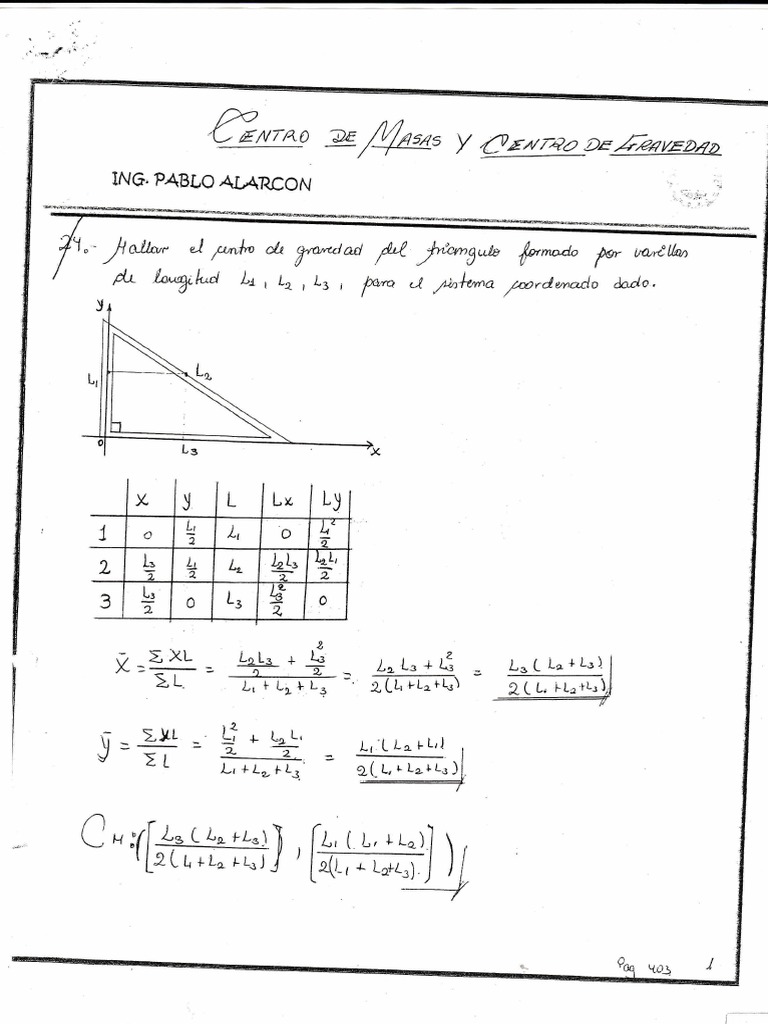 CENTRO DE MASAS Y CENTRO DE GRAVEDAD
ING. PABLO ALARCON
24.- Hallar el centro de gravedad del triangulo formado por varillas
de longitud L1, L2, L3, para el sistema coordenado dado.
y
L1
L2
0
L3
x
X y L Lx Ly
1 0 L1/2 L1 0 L1²/2
2 L3/2 L1/2 L2 L2L3/2 L2L1/2
3 L3/2 0 L3 L3²/2 0
X̄ = ΣXL/ΣL = (L2L3/2 + L3²/2)/(L1+L2+L3) = (L2L3+L3²)/2(L1+L2+L3) = L3(L2+L3)/2(L1+L2+L3)
ȳ = ΣyL/ΣL = (L1²/2 + L2L1/2)/(L1+L2+L3) = L1(L2+L1)/2(L1+L2+L3)
CM:([L3(L2+L3)/2(L1+L2+L3)], [L1(L1+L2)/2(L1+L2+L3)])
Pag 403 1